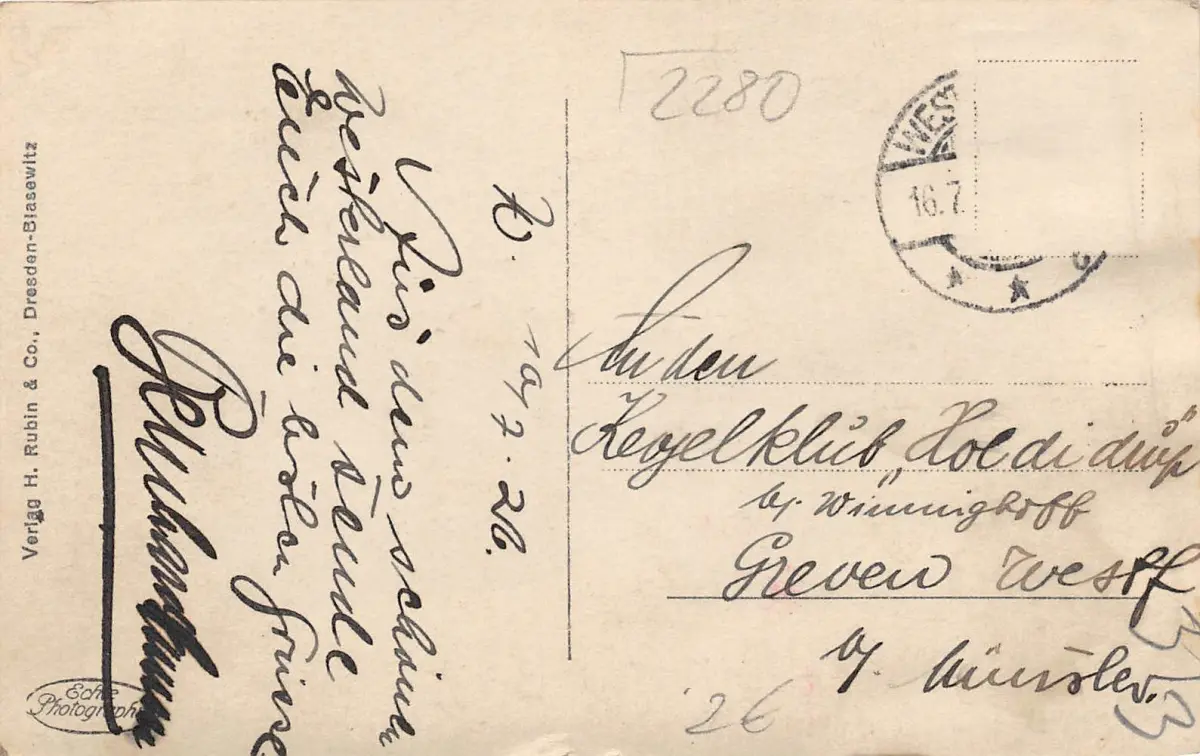 Verlag H. Rubin & Co., Dresden-Blasewitz
Echte
Photographie
W.
7. 26.
Aus dem schönen
Westerland sende
Euch die besten Grüsse
2280
WEST
16.7.
An den
Kegelklub „Hol di
by Winninghoff
Greven Westf
by Münster.
26